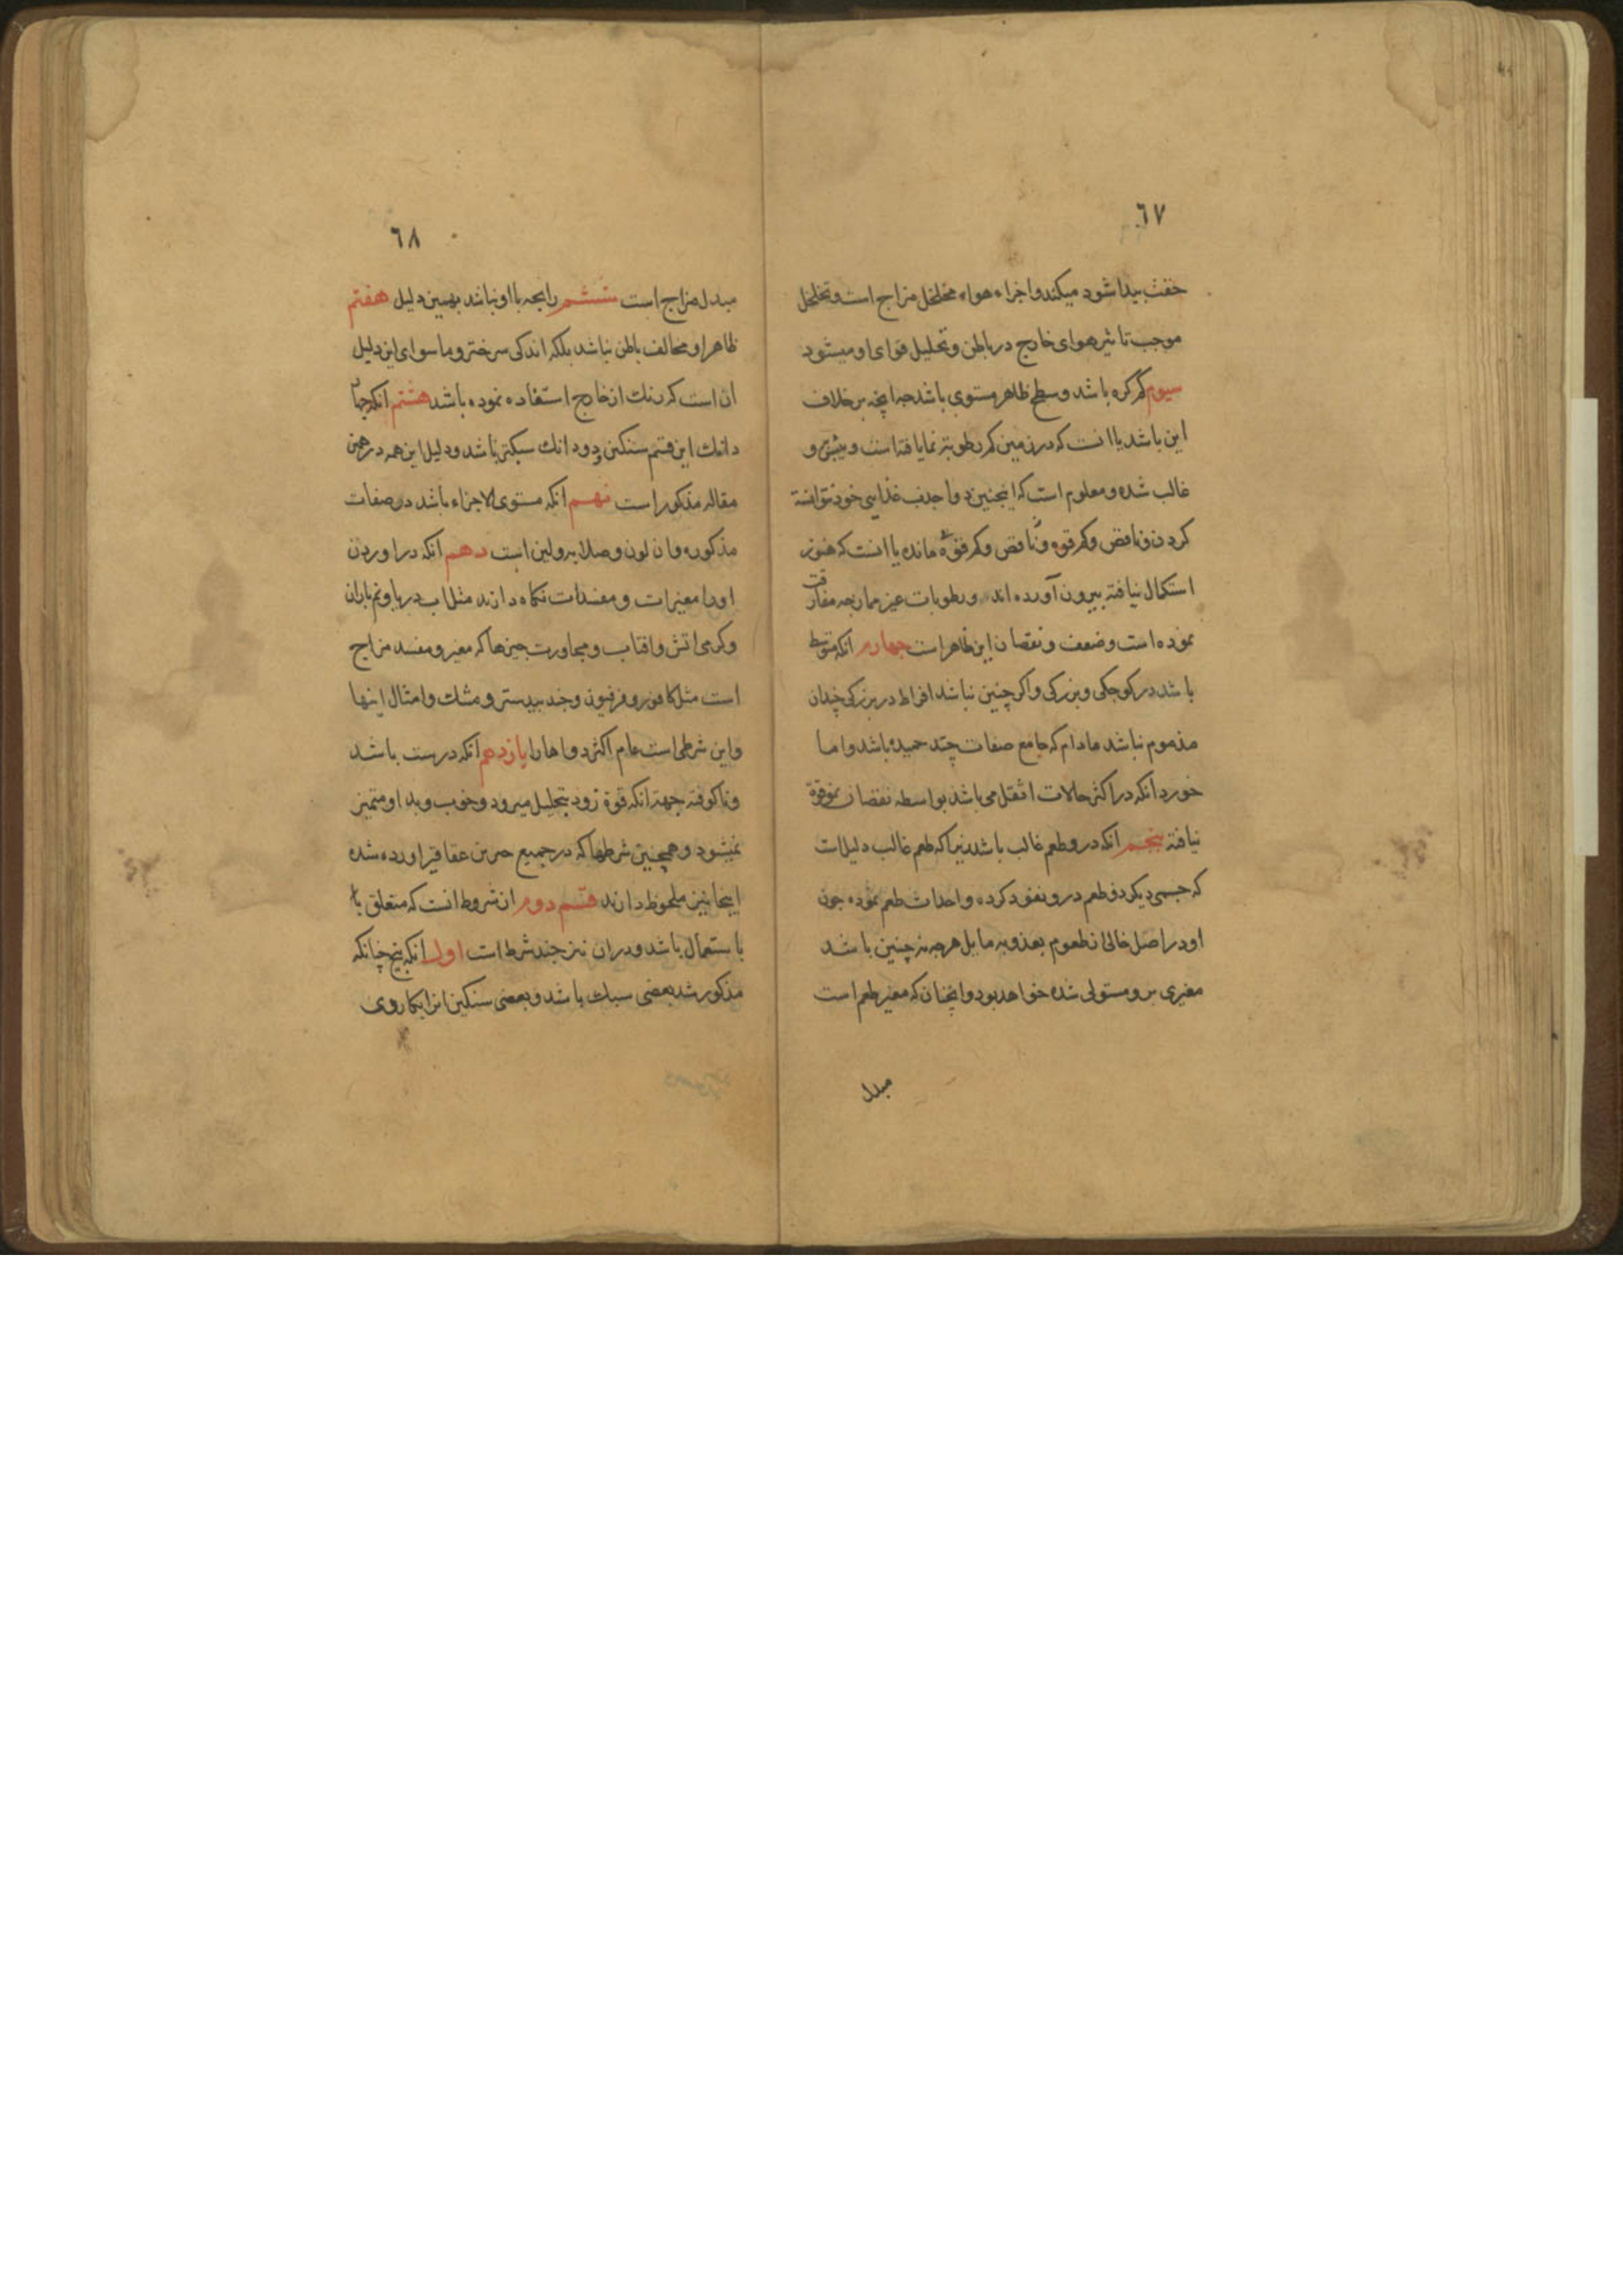 ٦٧
خفت پیدا شود میکند و اجزاء هواء مخلخل مزاج است و تخلخل
موجب تاثیر هوای خارج در باطن و تحلیل قوای او میشود
سیوم کم کره باشد و سطح ظاهر مستوی باشد چه انچه بر خلاف
این باشد یا انست که در زمین کم رطوبتر نما یافته است و یبس برو
غالب شده و معلوم است که اینچنین دوا جذب غذایی خود نتوانسته
کردن و ناقص و کم قوه مانده یا انست که هنوز
استکمال نیافته بیرون آورده اند و رطوبات غیر ممازجه مفارقت
نموده است و ضعف و نقصان این ظاهر است چهارم انکه متوسط
باشد در کوچکی و بزرکی و اکر چنین نباشد افراط در بزرکی چندان
مذموم نباشد مادام که جامع صفات چند حمیده باشد و اما
خورد انکه در اکثر حالات اثقل می باشد بواسطه نقصان نمو قوة
نیافته پنجم انکه درو طعم غالب باشد زیرا که طعم غالب دلیلات
که جسمی دیکر ذو طعم درو نفوذ کرده و احداث طعم نموده چون
او در اصل خالی از طعوم بعذوبه مایل هرچه نه چنین باشد
مغیری برو مستولی شده خواهد بود و انچنان که مغیر طعم است
مبدل
٦٨
مبدل مزاج است ششم رایحه با او نباشد بهمین دلیل هفتم
ظاهر او مخالف باطن نباشد بلکه اندکی سرختر و ما سوای این دلیل
ان است که رنك از خارج استفاده نموده باشد هشتم انکه چهار
دانك این قسم سنکین و دو دانك سبکتر باشد و دلیل این همه در همین
مقاله مذکور است نهم انکه مستوی الاجزاء باشد در صفات
مذکوره وان لون و صلابه و لین است دهم انکه در اوردن
او را مغیرات و مفسدات نکاه دارند مثل اب دریا و نم باران
و کرمی اتش و افتاب و مجاورت چیزها که مغیر و مفسد مزاج
است مثل کافور و فرفیون و جند بیدستر و مشك و امثال اینها
و این شرطی است عام اکثر دواها را یازدهم انکه درست باشد
و نا کوفته جهته انکه قوة زود بتحلیل میرود و خوب و بد او متمیز
نمیشود و همچنین شرطها که در جمیع خریدن عقاقیر اورده شده
اینجا نیز ملحوظ دارند قسم دوم از شروط انست که متعلق با
باستعمال باشد و دران نیز چند شرط است اول انکه بیخ چنانکه
مذکور شد بعضی سبك باشد و بعضی سنکین انرا بکار وی